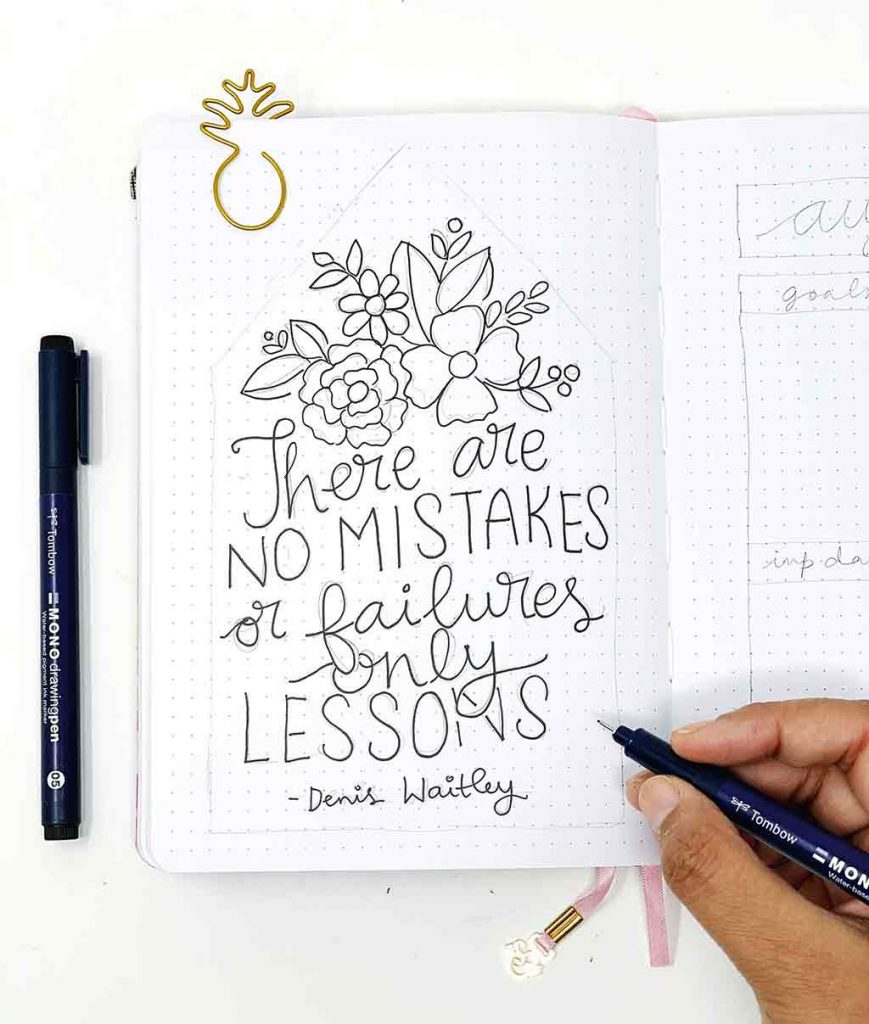 There are
NO MISTAKES
or failures
only
LESSONS
- Denis Waitley
goals
Tombow
MONO drawing pen
Water-based pigment ink marker
05
Tombow
MONO